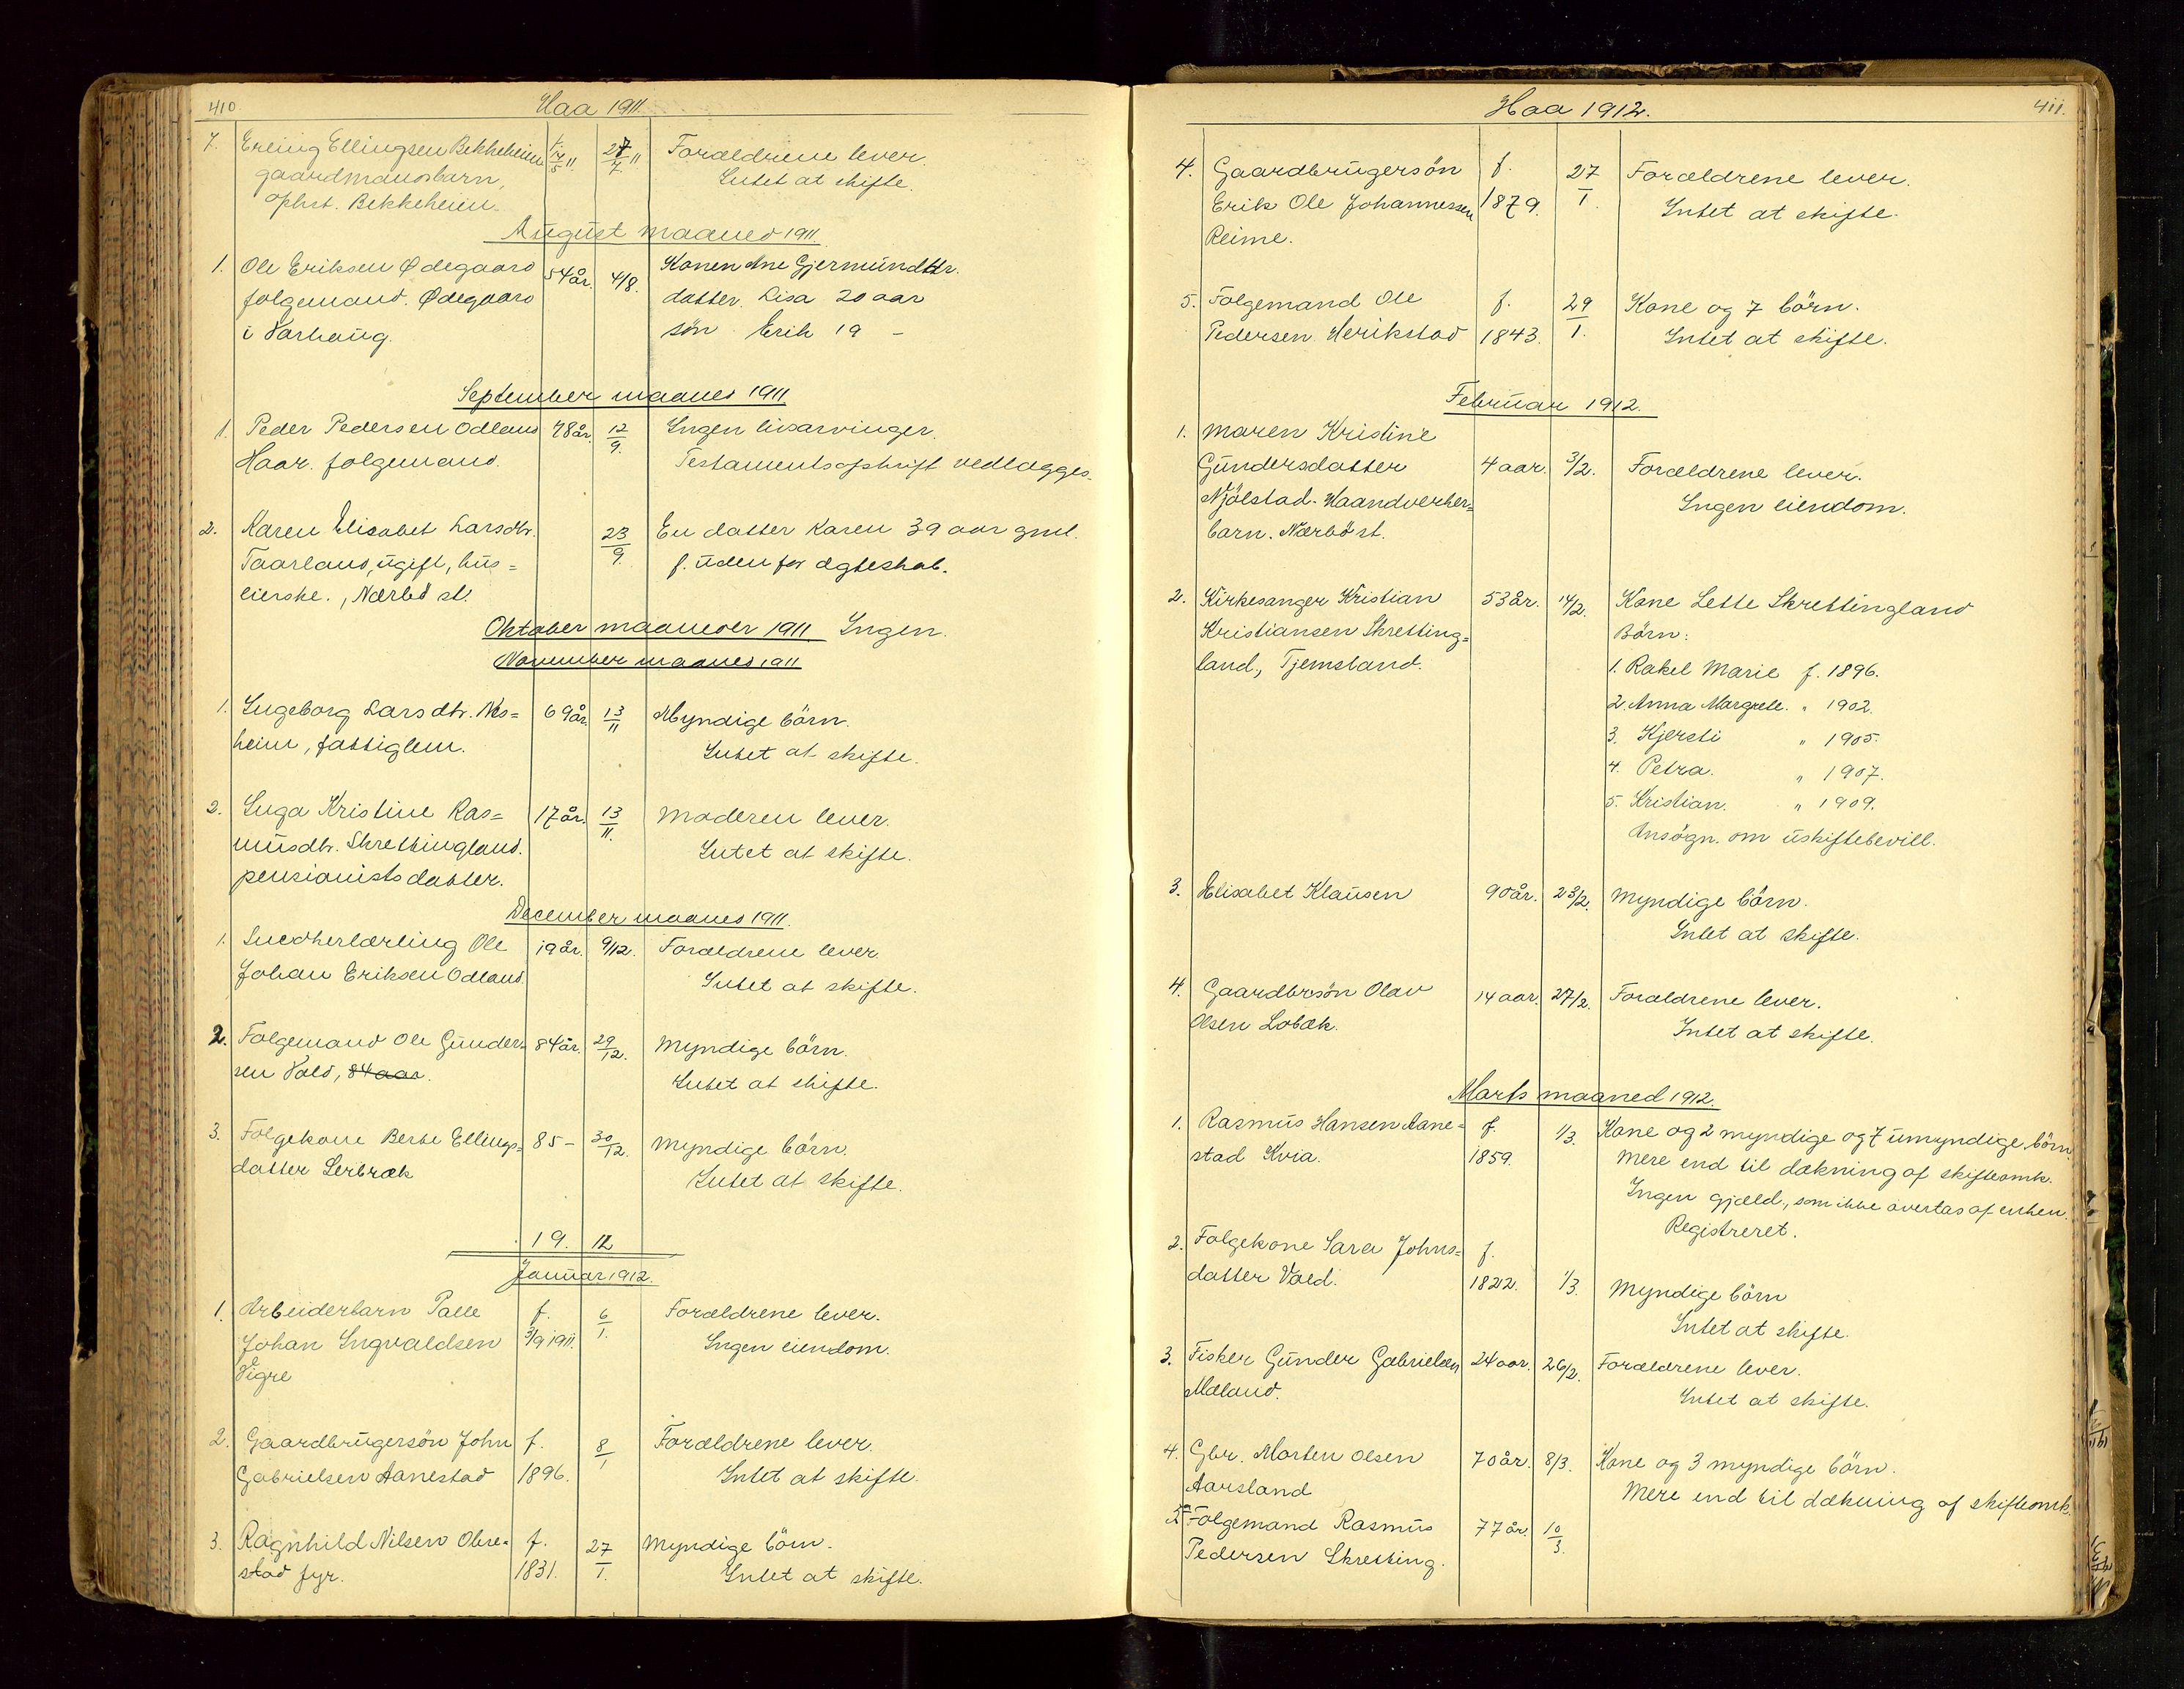 410
Haa 1911.
7. Erling Ellingsen Bekkeheien f. 14/5 11 27/7 11 Forældrene lever.
gaardmansbarn, Intet at skifte.
ophst. Bekkeheien.
August maaned 1911.
1. Ole Eriksen Ødegaard 54 år. 4/8. Konen Ane Gjermundtr.
folgemand. Ødegaard datter. Lisa 20 aar
i Varhaug. søn Erik 19 –
September maaned 1911
1. Peder Pedersen Odland 78 år. 12/9. Ingen livsarvinger.
Haar. folgemand. Testamentsafskrift vedlægges.
2. Karen Elisabet Larsdtr. 23/9. En datter Karen 39 aar gml.
Taarland, ugift, hus= f. uden for ægteskab.
eierske., Nærbö st.
Oktober maaneder 1911. Ingen.
November maaned 1911
1. Ingeborg Larsdtr. Nes= 69 år. 13/11 Myndige börn.
heim, fattiglem. Intet at skifte.
2. Inga Kristine Ras= 17 år. 13/11. Moderen lever.
musdtr. Skrettingland. Intet at skifte.
pensionistsdatter.
December maaned 1911.
1. Snedkerlærling Ole 19 år. 9/12. Forældrene lever.
Johan Eriksen Odland. Intet at skifte.
2. Folgemand Ole Gunder= 84 år. 29/12. Myndige börn.
sen Vold, 84 aar. Intet at skifte.
3. Folgekone Berte Ellings= 85 – 30/12. Myndige börn.
datter Serbræk Intet at skifte.
19. 12
Januar 1912.
1. Arbeiderbarn Palle f. 6/1. Forældrene lever.
Johan Ingvaldsen 3/9 1911. Ingen eiendom.
Vigre
2. Gaardbrugersön John f. 8/1 Forældrene lever.
Gabrielsen Aanestad 1896. Intet at skifte.
3. Ragnhild Nilsen Obre= f. 27/1. Myndige börn.
stad fyr. 1831. Intet at skifte.
Haa 1912.
411.
4. Gaardbrugersön f. 27/1. Forældrene lever.
Erik Ole Johannessen 1879. Intet at skifte.
Reime.
5. Folgemand Ole f. 29/1. Kone og 7 börn.
Pedersen Herikstad 1843. Intet at skifte.
Februar 1912.
1. Maren Kristine
Gundersdatter 4 aar. 3/2. Forældrene lever.
Njölstad. Haandverker= Ingen eiendom.
barn. Nærbö st.
2. Kirkesanger Kristian 53 år. 14/2. Kone Lette Skrettingland
Kristiansen Skretting= Börn:
land., Tjemsland. 1. Rakel Marie f. 1896.
2. Anna Margrete. " 1902.
3. Kjersti " 1905.
4. Petra. " 1907.
5. Kristian. " 1909.
Ansögn. om uskiftebevill.
3. Elisabet Klausen 90 år. 23/2. Myndige börn.
Intet at skifte.
4. Gaardbrsön Olav 14 aar. 27/2. Forældrene lever.
Olsen Lobæk. Intet at skifte.
Marts maaned 1912.
1. Rasmus Hansen Aane= f. 1/3. Kone og 2 myndige og 7 umyndige börn.
stad Kvia. 1859. Mere end til dækning af skifteomk.
Ingen gjæld., som ikke overtas af enken.
Registreret.
2. Folgekone Sara Johns= f.
datter Vold. 1822. 1/3. Myndige börn
Intet at skifte.
3. Fisker Gunder Gabrielsen 24 aar. 26/2. Forældrene lever.
Mæland. Intet at skifte.
4. Gbr. Morten Olsen 70 år. 8/3. Kone og 3 myndige börn.
Aarsland Mere end til dækning af skifteomk.
5. Folgemand Rasmus 77 år. 10/3.
Pedersen Skretting.